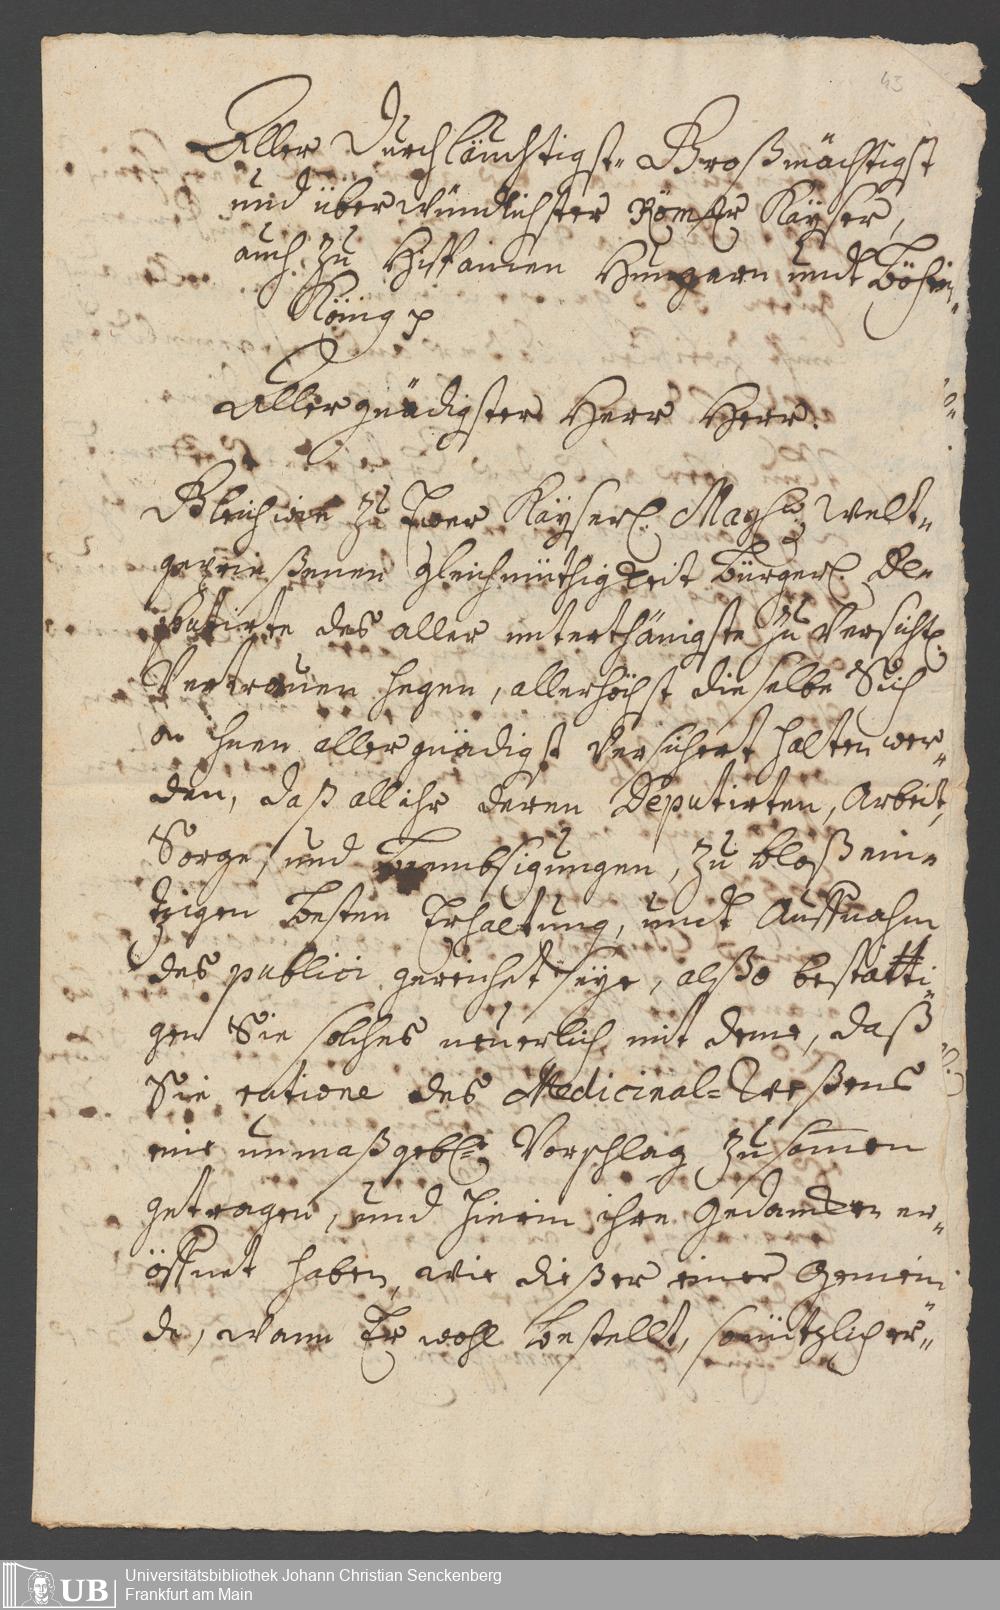 43
Aller Durchläuchtigst- Großmächtigst
und überwündlichster Römer Käyser,
auch zu Hispanien Hungarn undt Böheim-
König p
Allergnädigster Herr Herr.
Gleichwie zu Ewer Käyserl. Mayst. welt-
gepriesenen Gleichmüthigkeit Bürgerl. De-
putirte das aller unterthänigste zuversichtl.
Vertrauen hegen, allerhöchst dieselbe Sich
von ihnen allergnädigst versichert halten wer-
den, daß all ihr deren Deputirten, Arbeit,
Sorge, und Bembsigungen, zu bloß ein-
tzigen besten Erhaltung, undt Auffnahm
des publici gereichet seye, alßo bestätti-
gen Sie solches neuerlich mit deme, daß
Sie ratione des Medicinal-Weßens
ein unmaßgebl. Vorschlag zusamen
getragen, und hierin ihre Gedancken er-
öffnet haben, wie dießer einer Gemein-
de, wann Er wohl bestellt, so nützlicher-
UB
Universitätsbibliothek Johann Christian Senckenberg
Frankfurt am Main